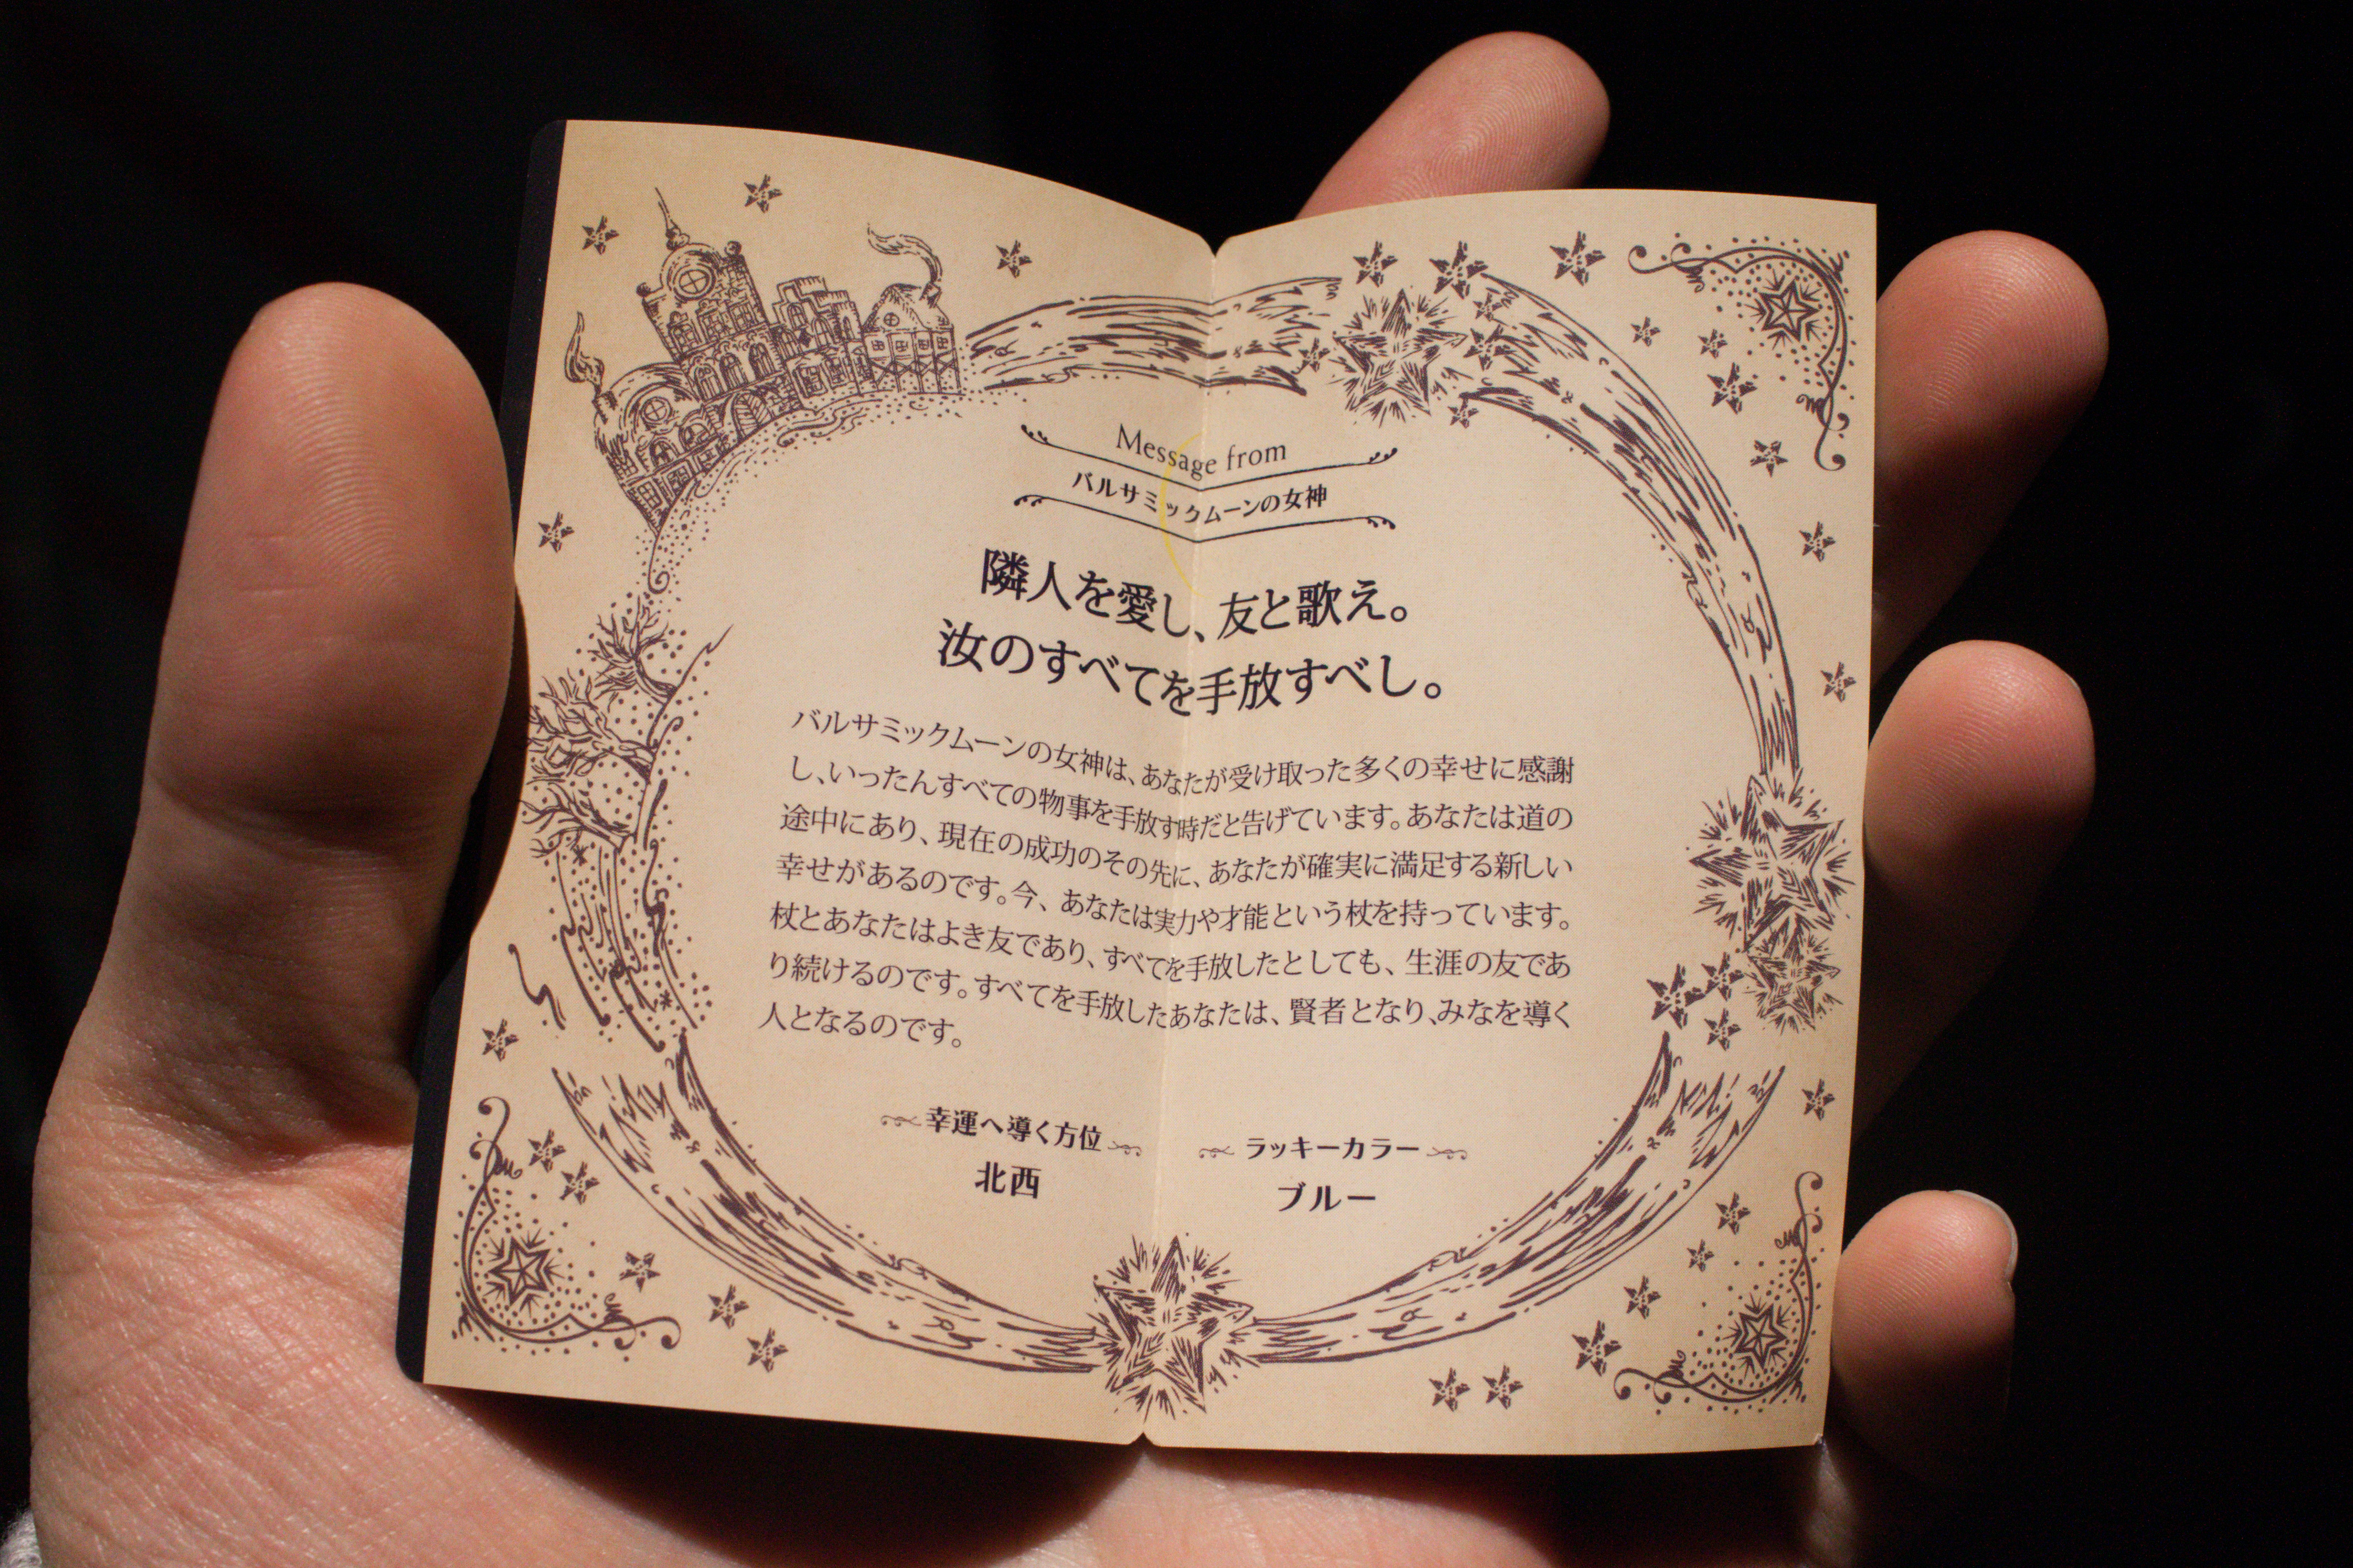 Message from
バルサミックムーンの女神
隣人を愛し、友と歌え。
汝のすべてを手放すべし。
バルサミックムーンの女神は、あなたが受け取った多くの幸せに感謝
し、いったんすべての物事を手放す時だと告げています。あなたは道の
途中にあり、現在の成功のその先に、あなたが確実に満足する新しい
幸せがあるのです。今、あなたは実力や才能という杖を持っています。
杖とあなたはよき友であり、すべてを手放したとしても、生涯の友であ
り続けるのです。すべてを手放したあなたは、賢者となり、みなを導く
人となるのです。
幸運へ導く方位
北西
ラッキーカラー
ブルー